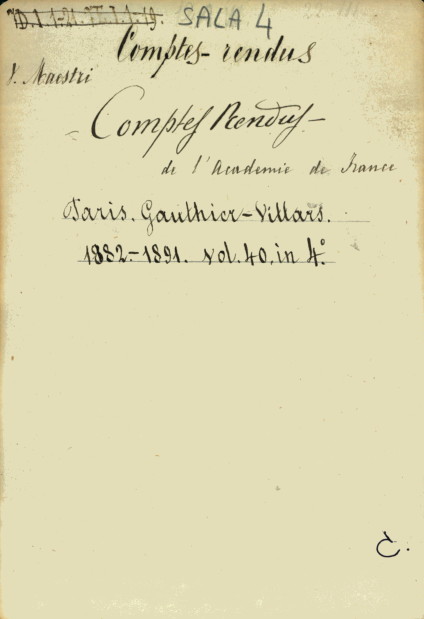 7D.I.1-21. VI.I.1-19. SALA 4
Comptes-rendus
V. Maestri
Comptes Rendus
de l'Academie de France
Paris. Gauthier-Villars.
1882-1891. vol. 40. in 4°.
C.